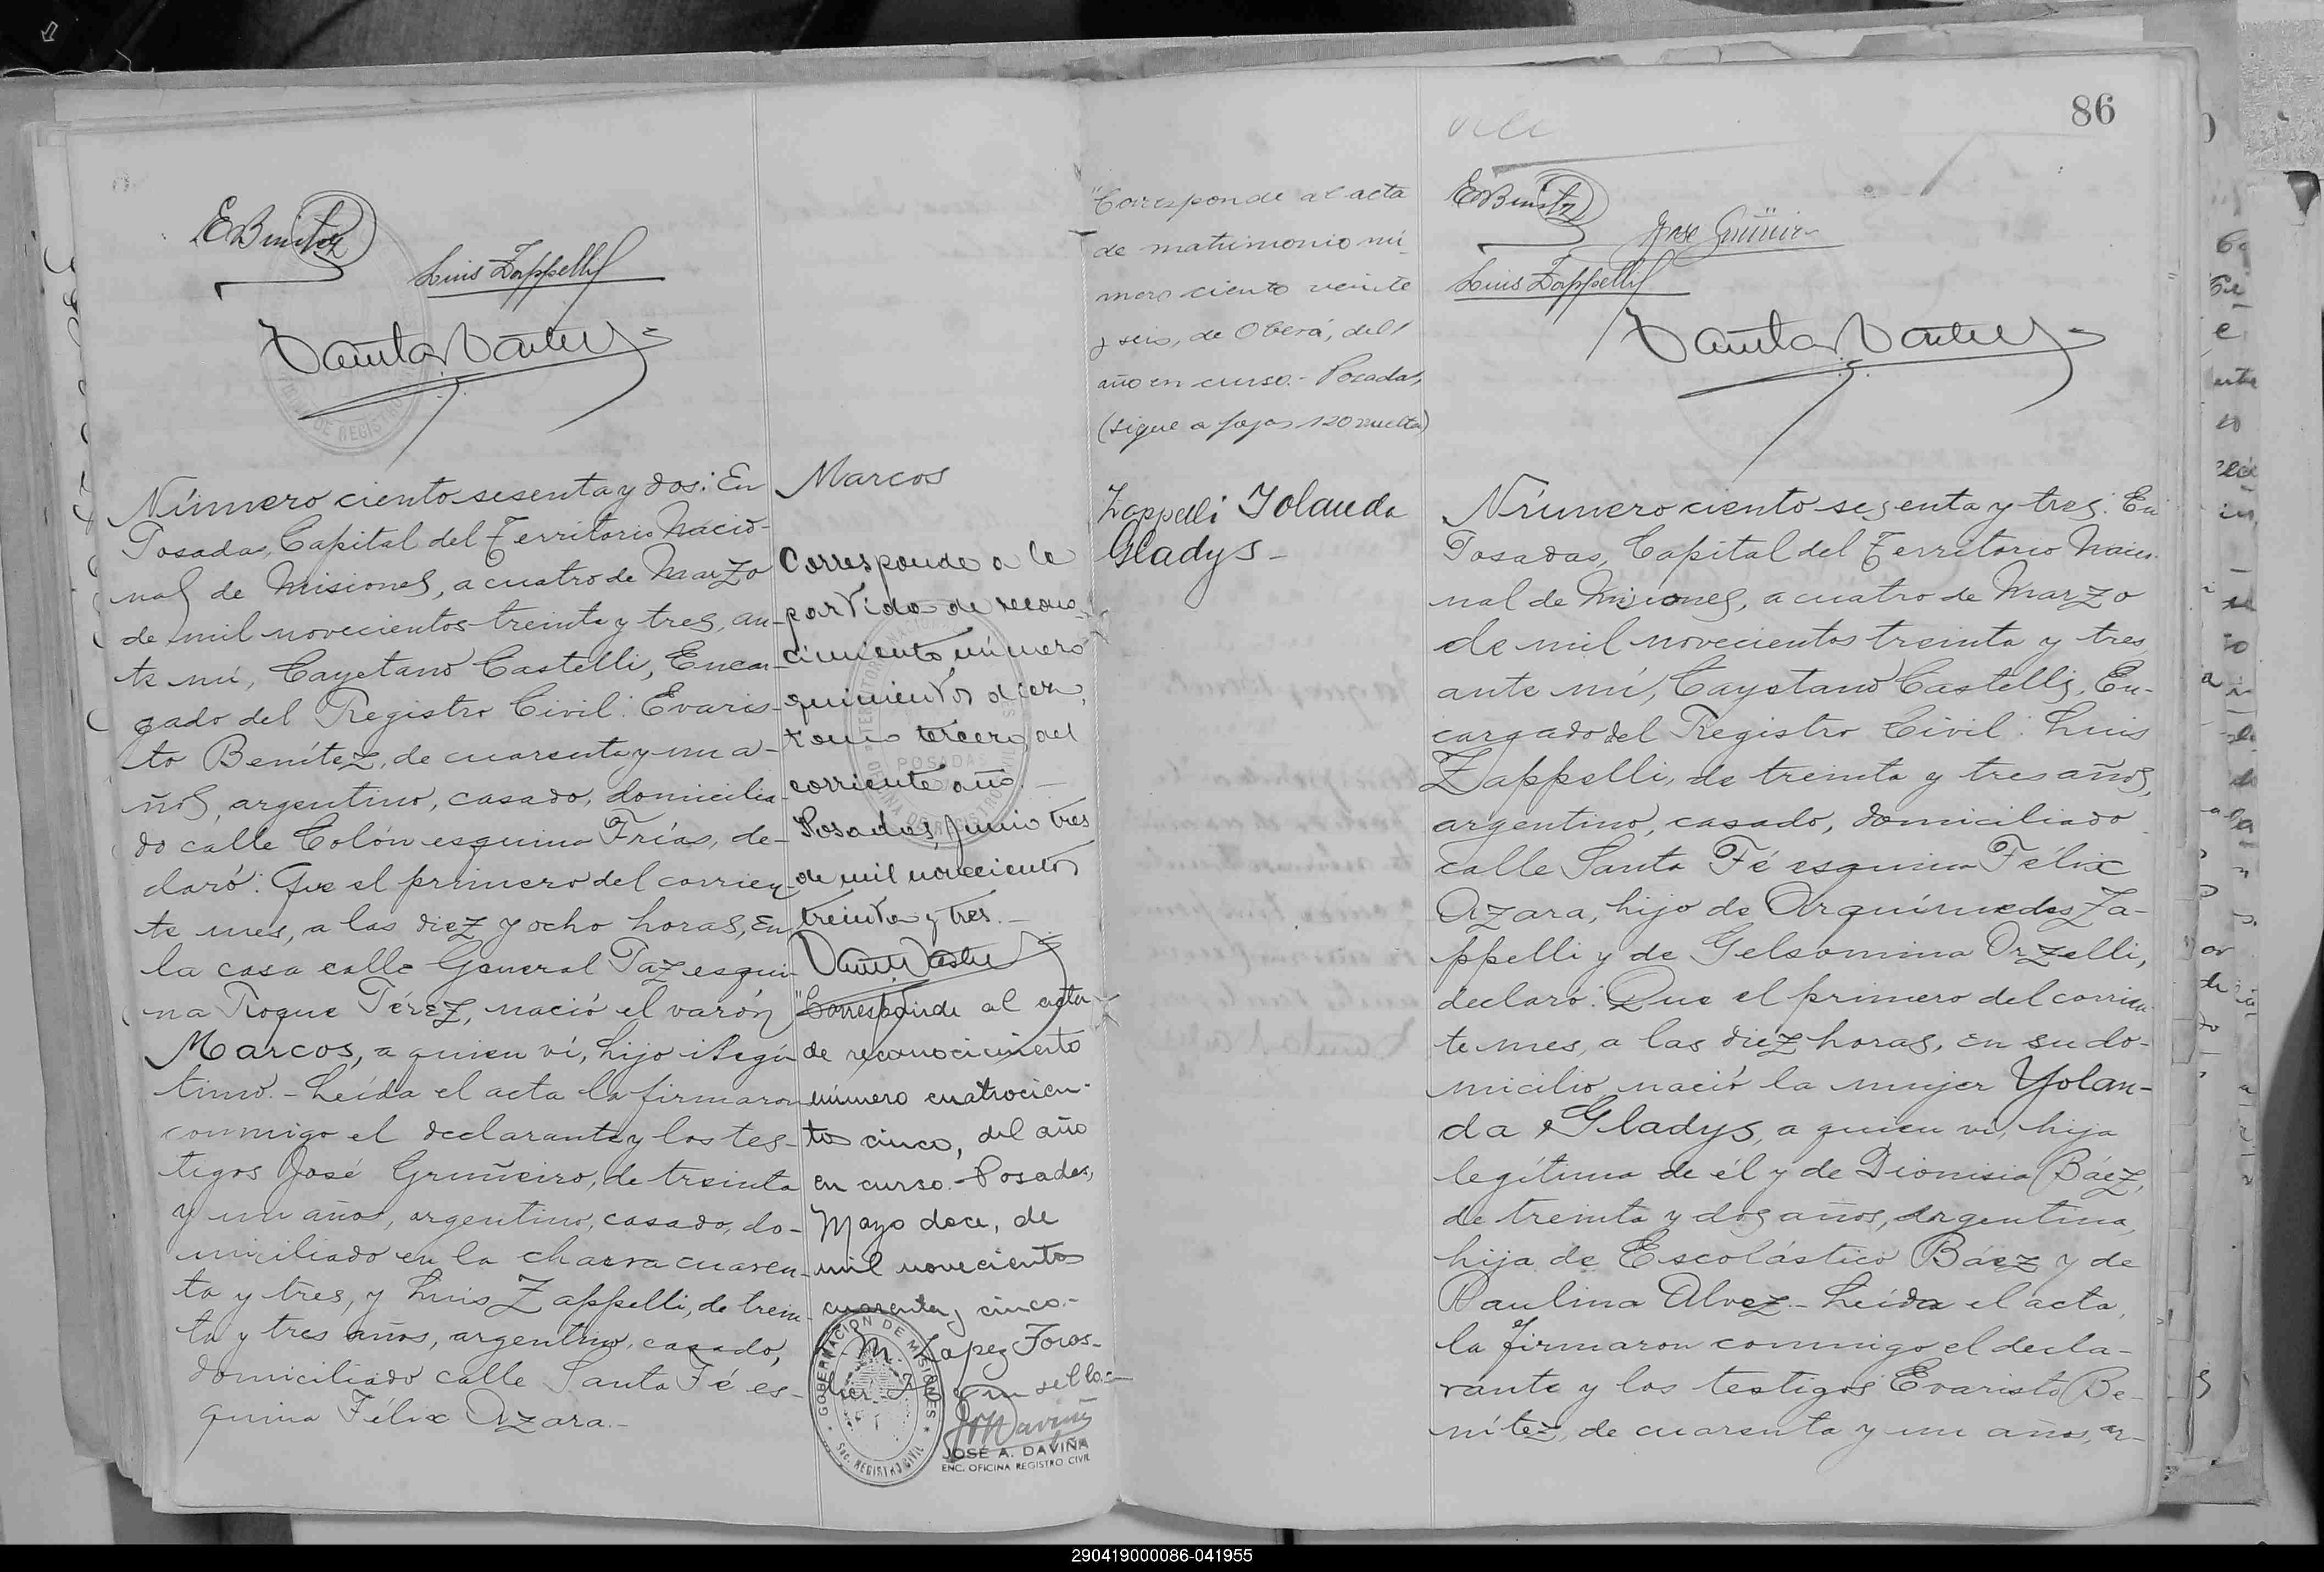 E Benítez
Luis Zappelli
Número ciento sesenta y dos: En
Posadas, Capital del Territorio Nacio-
nal de Misiones, a cuatro de Marzo
de mil novecientos treinta y tres, an-
te mí, Cayetano Castelli, Encar-
gado del Registro Civil: Evaris-
to Benítez, de cuarenta y un a-
ños, argentino, casado, domicilia-
do calle Colón esquina Frías, de-
claró: Que el primero del corrien-
te mes, a las diez y ocho horas, en
la casa calle General Paz esqui-
na Roque Pérez, nació el varón
Marcos, a quien ví, hijo ilegí-
timo.- Leída el acta la firmaron
conmigo el declarante y los tes-
tigos José Gruñeiro, de treinta
y un años, argentino, casado, do-
miciliado en la chacra cuaren-
ta y tres, y Luis Zappelli, de trein-
ta y tres años, argentino, casado,
domiciliado calle Santa Fé es-
quina Félix Azara.-
Marcos
Corresponde a la
partida de recono-
cimiento número
quinientos diez,
tomo tercero del
corriente año.-
Posadas, Junio tres
de mil novecientos
treinta y tres.-
"Corresponde al acta
de reconocimiento
número cuatrocien-
tos cinco, del año
en curso.- Posadas,
Mayo doce, de
mil novecientos
cuarenta y cinco.-
M. Lopez Foros-
y un sello.-
GOBERNACION DE MISIONES
REGISTRO CIVIL
JOSÉ A. DAVIÑA
ENC. OFICINA REGISTRO CIVIL
"Corresponde al acta
de matrimonio nú-
mero ciento veinte
y seis, de Oberá, del
año en curso.- Posadas,
(sigue a fojas 120 vuelta)
Zappelli Yolanda
Gladys-
86
E Benítez
Luis Zappelli
Número ciento sesenta y tres: En
Posadas, Capital del Territorio Nacio-
nal de Misiones, a cuatro de Marzo
de mil novecientos treinta y tres,
ante mí, Cayetano Castelli, En-
cargado del Registro Civil: Luis
Zappelli, de treinta y tres años,
argentino, casado, domiciliado
calle Santa Fé esquina Félix
Azara, hijo de Arquímedes Za-
ppelli y de Gelsomina Orzelli,
declaró: Que el primero del corrien-
te mes, a las diez horas, en su do-
micilio, nació la mujer Yolan-
da Gladys, a quien ví, hija
legítima de él y de Dionisia Báez,
de treinta y dos años, argentina,
hija de Escolástico Báez y de
Paulina Alvez.- Leída el acta,
la firmaron conmigo el decla-
rante y los testigos Evaristo Be-
nítez, de cuarenta y un años, ar-
290419000086-041955